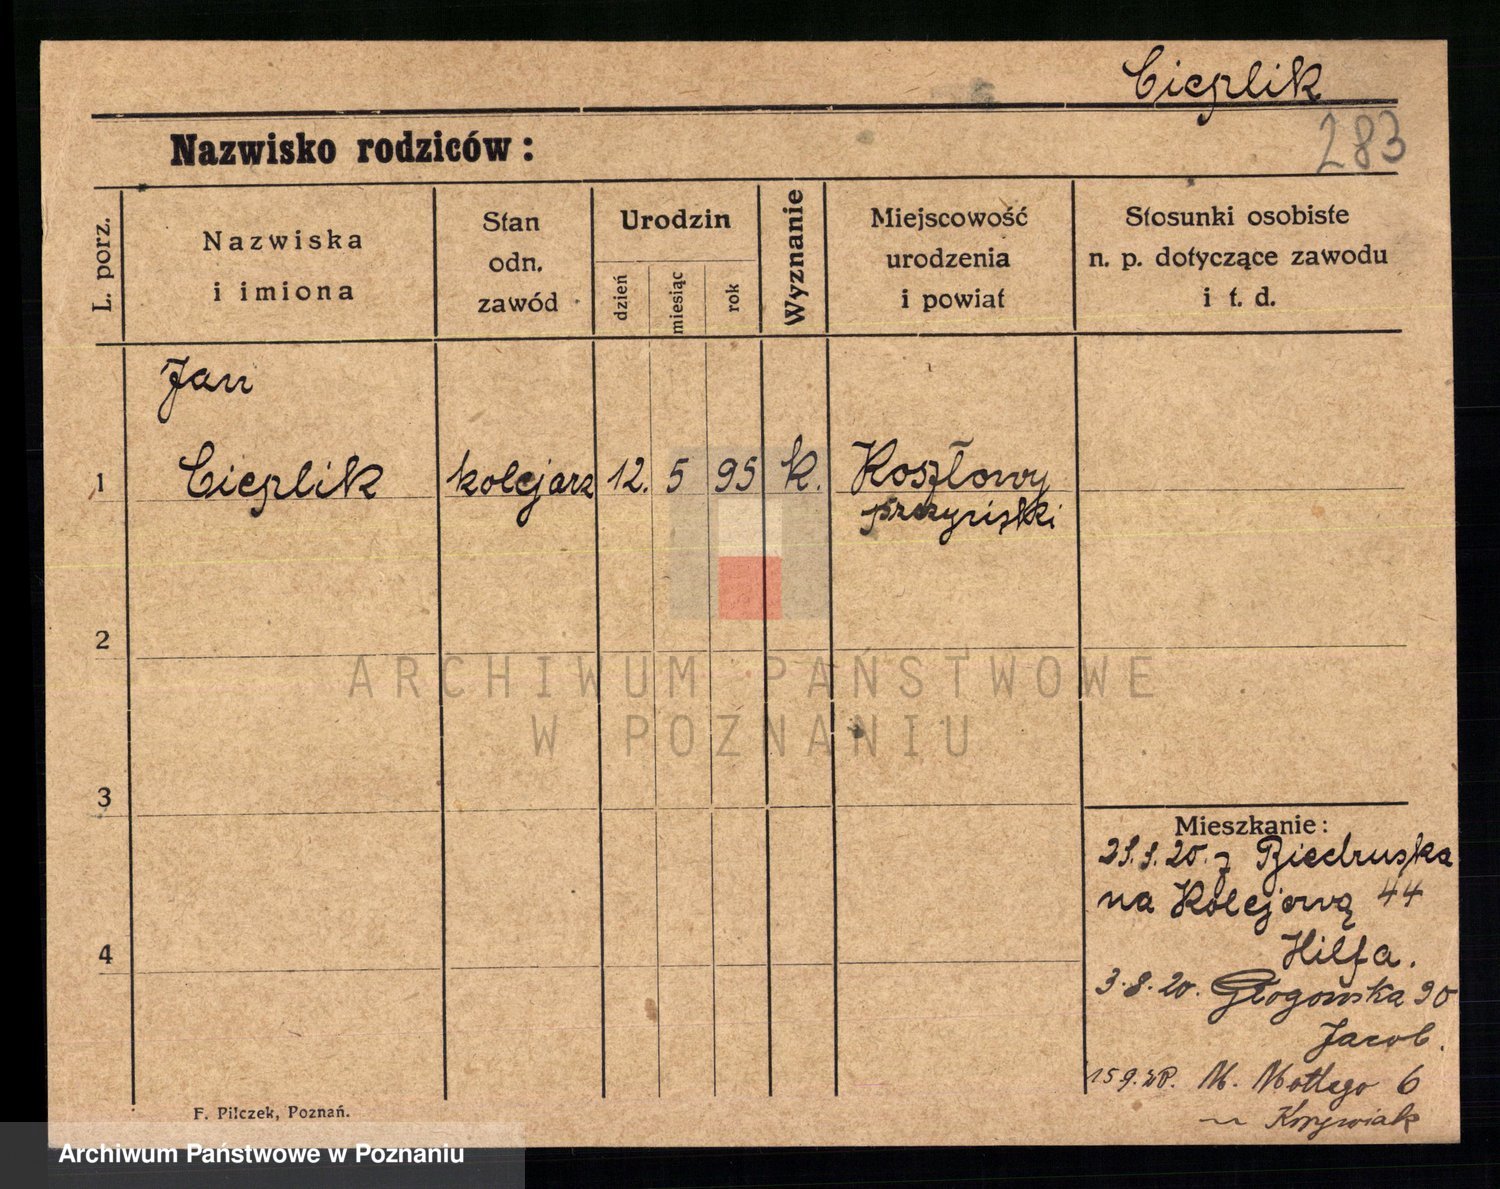 Cieplik
283
Nazwisko rodziców:
L. porz.
Nazwiska
i imiona
Stan
odn.
zawód
Urodzin
dzień
miesiąc
rok
Wyznanie
Miejscowość
urodzenia
i powiat
Stosunki osobiste
n. p. dotyczące zawodu
i t. d.
Jan
1 Cieplik kolejarz 12. 5 95 k. Koszłowy
2
3
4
Mieszkanie:
20. z Biedruska
na Kolejową 44
Hilfa.
3.8.20. Głogowska 90
Jacob.
15 9. M. 6
F. Pilczek, Poznań.
ARCHIWUM PAŃSTWOWE
W POZNANIU
Archiwum Państwowe w Poznaniu